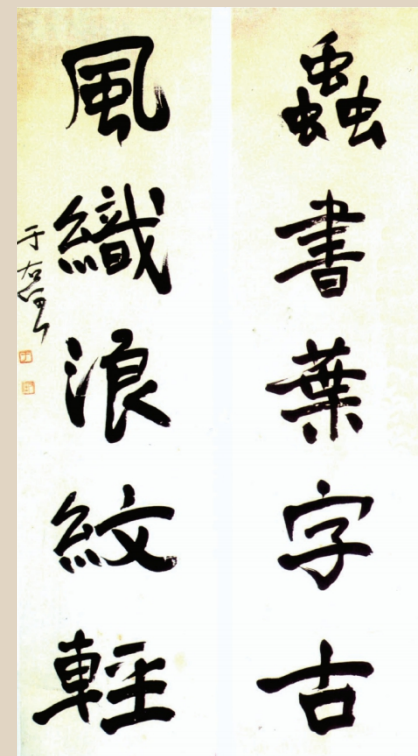 蟲書葉字古
風織浪紋輕
于右任